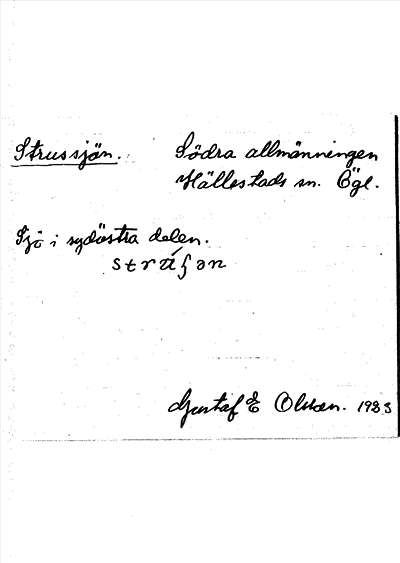 Strussjön.
Södra allmänningen
Hällestads sn. Ögl.
Sjö i sydöstra delen.
Gustaf E Olsson. 1933